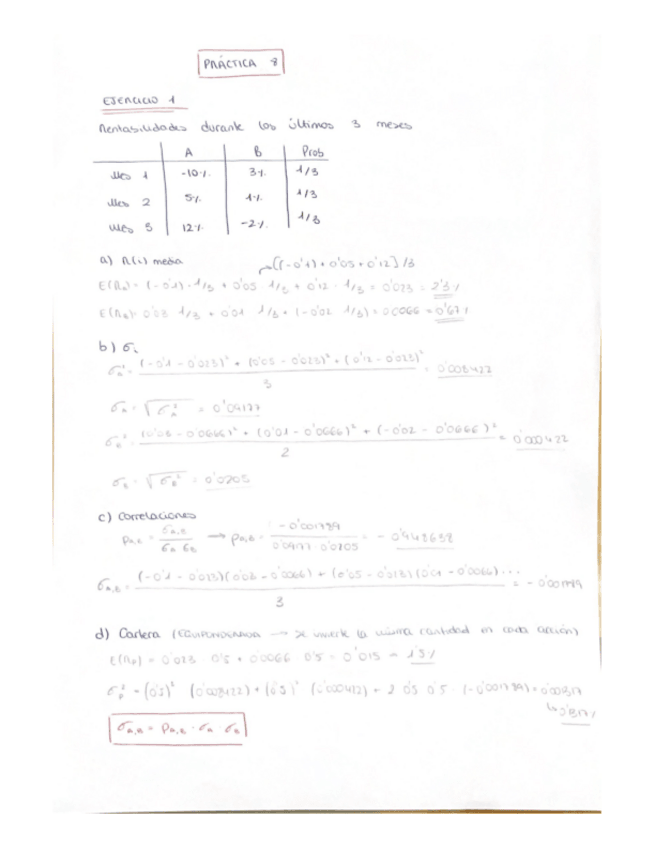 PRÁCTICA 8
EJERCICIO 1
Rentabilidades durante los últimos 3 meses
A B Prob
Mes 1 -10% 3% 1/3
Mes 2 5% 1% 1/3
Mes 3 12% -2% 1/3
a) R(i) media [(-0'1) + 0'05 + 0'12] /3
E(RA) = (-0'1) · 1/3 + 0'05 · 1/3 + 0'12 · 1/3 = 0'023 = 2'3%
E(RB) = 0'03 · 1/3 + 0'01 · 1/3 + (-0'02 · 1/3) = 0'0066 = 0'67%
b) σi
σA² = (-0'1 - 0'023)² + (0'05 - 0'023)² + (0'12 - 0'023)² / 3 = 0'008422
σA = √σA² = 0'09177
σB² = (0'03 - 0'0666)² + (0'01 - 0'0666)² + (-0'02 - 0'0666)² / 2 = 0'000422
σB = √σB² = 0'0205
c) Correlaciones
ρA,B = σA,B / σA · σB → ρA,B = -0'001789 / 0'0977 · 0'0205 = -0'948698
σA,B = (-0'1 - 0'023)(0'03 - 0'0066) + (0'05 - 0'023)(0'01 - 0'0066) ... / 3 = -0'001789
d) Cartera (EQUIPONDERADA → se invierte la misma cantidad en cada acción)
E(Rp) = 0'023 · 0'5 + 0'0066 · 0'5 = 0'015 = 1'5%
σp² = (0'5)² (0'008422) + (0'5)² (0'000422) + 2 · 0'5 · 0'5 · (-0'001789) =
σA,B = ρA,B · σA · σB